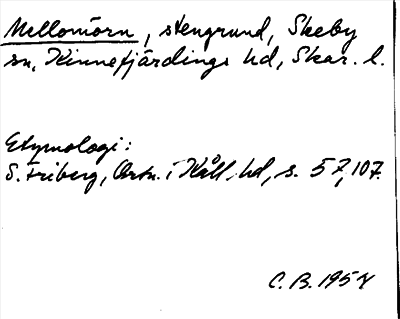 Mellomörn, stengrund, Skeby
sn, Kinnefjärdings hd, Skar. l.
Etymologi:
S. Friberg, Ortn. i Kåll. hd, s. 57, 107.
C. B. 1958